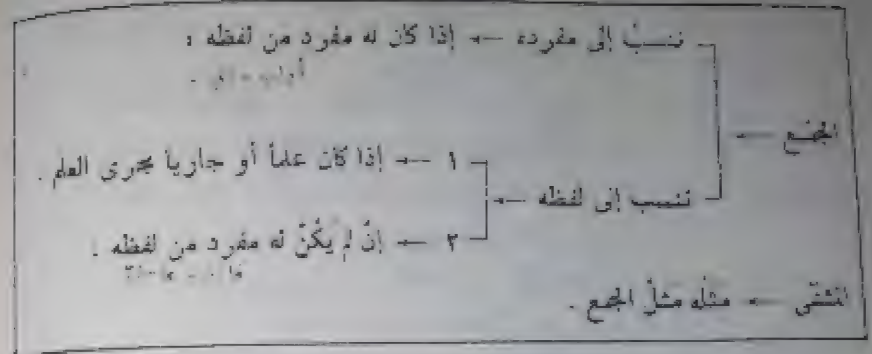 ننسبُ إلى مفرده ← إذا كان له مفرد من لفظه :
الجمع ←
ننسب إلى لفظه ←
١ ← إذا كان علماً أو جارياً مجرى العلم .
٢ ← إنْ لم يَكُنْ له مفرد من لفظه .
المثنّى ← مثلُه مثلُ الجمع .